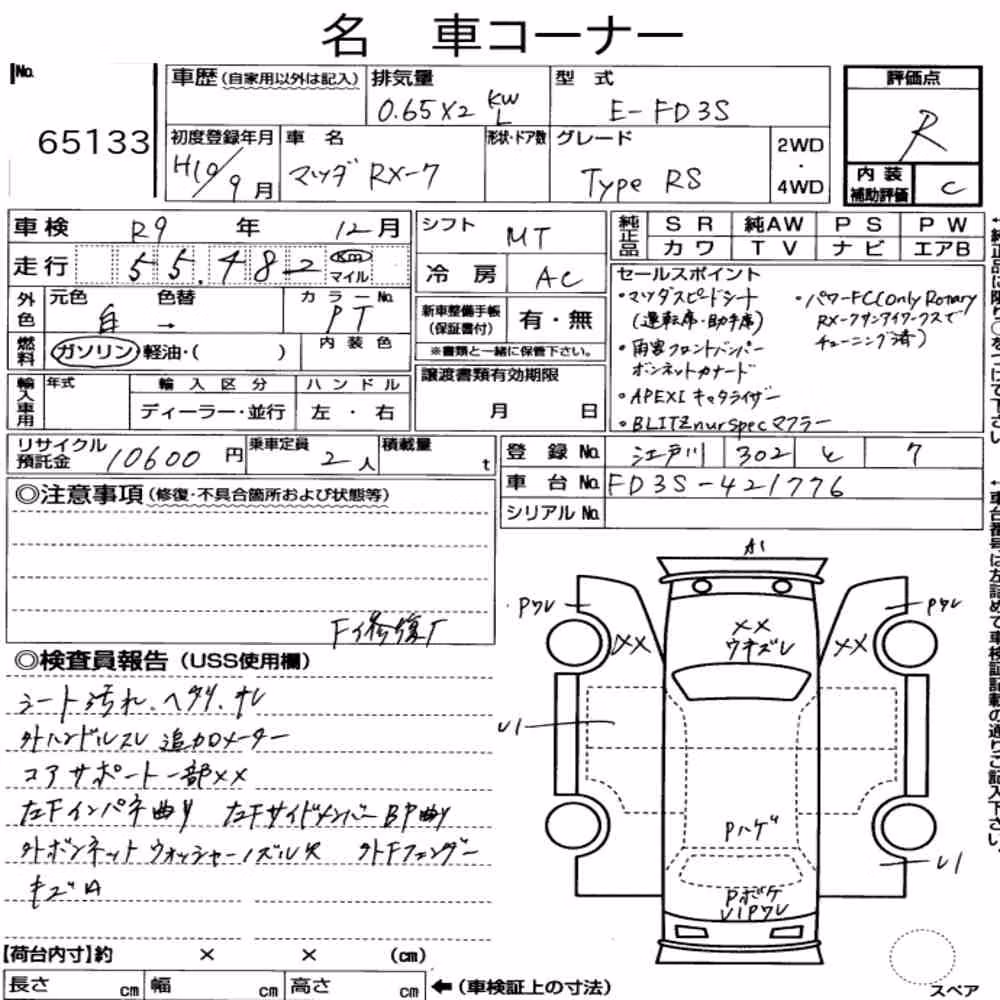 名 車コーナー
No. 65133
車歴 (自家用以外は記入)
排気量 0.65×2 KW L
型式 E-FD3S
評価点 R
初度登録年月 H10/9月
車名 マツダ RX-7
形状・ドア数
グレード Type RS
2WD・4WD
内装補助評価 C
車検 R9年 12月
シフト MT
純正品 SR 純AW PS PW
カワ TV ナビ エアB
走行 55,482 km マイル
冷房 AC
セールスポイント
・マツダスピードシート
(運転席・助手席)
・雨宮フロントバンパー
ボンネットカナード
・APEXi キャタライザー
・BLITZ nur spec マフラー
・パワーFC(only Rotary
RX-7サンアイワークスで
チューニング済)
外色 元色 白 色替 → カラーNo. PT
新車整備手帳(保証書付) 有・無
※書類と一緒に保管下さい。
燃料 ガソリン・軽油・( ) 内装色
譲渡書類有効期限 月 日
輸入車用 年式 輸入区分 ハンドル
ディーラー・並行 左・右
リサイクル預託金 10600円
乗車定員 2人
積載量 t
登録No. 江戸川 302 と 7
車台No. FD3S-421776
シリアルNo.
◎注意事項 (修復・不具合箇所および状態等)
F修復
◎検査員報告 (USS使用欄)
シート汚れ、ヘタリ、スレ
外ハンドルスレ 追加メーター
コアサポート一部××
左Fインパネ曲り 左FサイドメンバーBP曲り
外ボンネットウォッシャーノズル欠 外Fフェンダー
キズA
A1
Pワレ
Pワレ
××
××
××
ウキズレ
U1
Pハゲ
U1
Pボケ
U1Pワレ
【荷台内寸】約 × × (cm)
長さ cm 幅 cm 高さ cm ←(車検証上の寸法)
スペア
↑純正品に限り○をつけて下さい
↑車台番号は左詰めで車検証記載の通りご記入下さい。